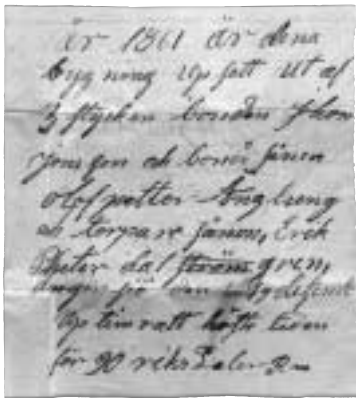 år 1861 är dena
bygning up satt ut af
3 stycken bonden Jhon
jons son och bonde sånen
olof petter Englung
och torpare sånen, Erik
Peter dal gren,
på den
up timratt
för 90 riks daler Rm